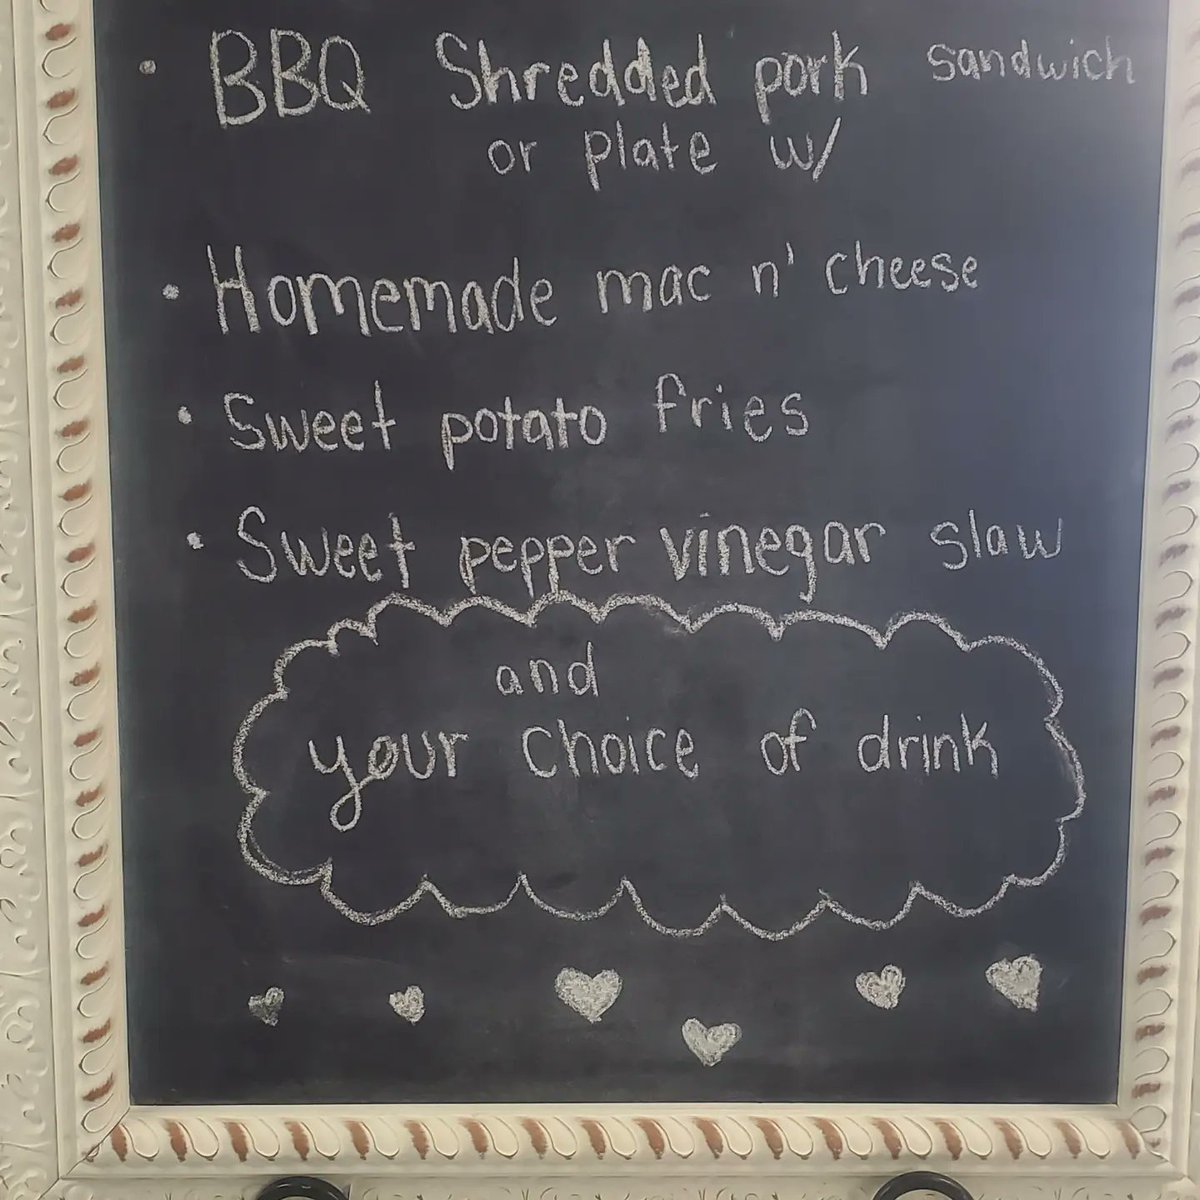 • BBQ Shredded pork sandwich
or plate w/
• Homemade mac n' cheese
• Sweet potato fries
• Sweet pepper vinegar slaw
and
your choice of drink